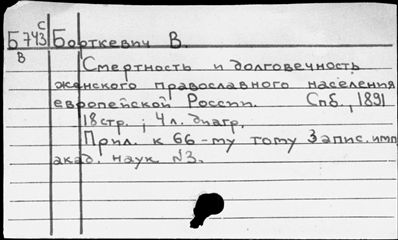 С
Б 743 Борткевич В.
В
Смертность и долговечность
женского православного населения
европейской России. Спб., 1891
18 стр.; 4 л. диагр.
Прил. к 66-му тому Запис. имп.
акад. наук №3.